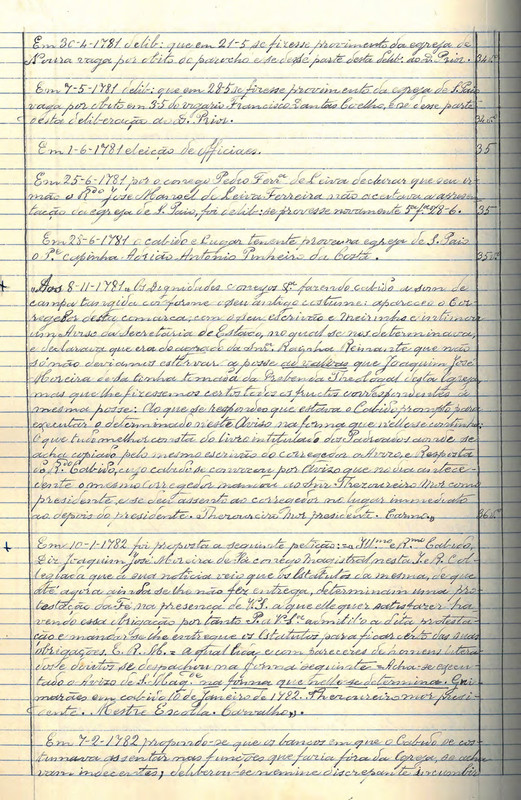 Em 30-4-1781 delib: que em 21-5 se fizesse provimento da egreja de
vaga por obito do parocho e se desse parte desta delib. ao D. Prior. 34 v.
Em 7-5-1781 delib: que em 28-5 se fizesse provimento da egreja de S. Paio
vaga por obito em 3-5 do vigario Francisco Dantas Coelho, e se desse parte
desta deliberação ao D. Prior. 34 v.
Em 1-6-1781 eleição de officiaes. 35
Em 25-6-1781 por o conego Pedro Ferrª de Leiva declarar que seu ir-
mão o Rdo José Manoel de Leiva Ferreira não aceitava a apresen-
tação da egreja de S. Paio, foi delib: se provesse novamente 5ª fª 28-6. 35
Em 28-6-1781 o cabido e Lugar tenente proveu na egreja de S. Paio
o Pe capinha Adrião Antonio Pinheiro da Costa. 35 v.
Aos 8-11-1781. As Dignidades conegos &ª fazendo cabido a som de
campa tangida conforme o seu antigo costume: apareceo o Cor-
regedor desta comarca; com o seu escrivão e Meirinho e intimou
um Aviso da Secretaria de Estado, no qual se nos determinava,
e declarava que era do agrado da Snrª Rainha Reinante que não
só não deviamos estorvar a posse que Joaquim José
Moreira de Sá tinha tomado da Prebenda Theologal desta Egreja,
mas que lhe fizessemos certos todos os fructos correspondentes á
mesma posse: Ao que se respondeo que estava o Cabido prompto para
executar o determinado neste Aviso na forma que nelle se continha:
O que tudo melhor consta do livro intitulado dos Padroados aonde se
acha copiado pelo mesmo escrivão do corregedor o Aviso, e Resposta
do Rdo Cabido, cujo cabido se convocou por Aviso que no dia antece-
dente o mesmo corregedor mandou ao Snr Thezoureiro Mor como
presidente, e se deo assento ao corregedor no lugar immediato
ao depois do presidente. Thezoureiro Mor presidente. Carmo. 36 v.
Em 10-1-1782 foi proposta a seguinte petição: = Illmo e Rmo Cabido,
Diz Joaquim José Moreira de Sá conego Magistral nesta I. e R. Col-
legiada que á sua noticia veio que os Estatutos da mesma, de que
até agora ainda se lhe não fez entrega, determinam uma pro-
testação da Fé na presença de V. S. a que elle quer satisfazer ha-
vendo essa obrigação por tanto P. a V. Sª o admitil-o a dita protesta-
ção e mandar se lhe entregue os Estatutos para ficar certo das suas
obrigações. E. R. M. = A qual lida, e com pareceres de homens letra-
dos e doutos se despachou na forma seguinte = Acha-se execu-
tado o Avizo de S. Magde na forma que nelle se determina. Gui-
marães em cabido 10 de Janeiro de 1782. Thezoureiro mor presi-
dente. Mestre Escolla. Carvalho.
Em 7-2-1782 propondo-se que os bancos em que o Cabido se cos-
tumava assentar nas funções que fazia fora da Egreja, se acha-
vam indecentes, deliberou-se nemine discrepante incumbir